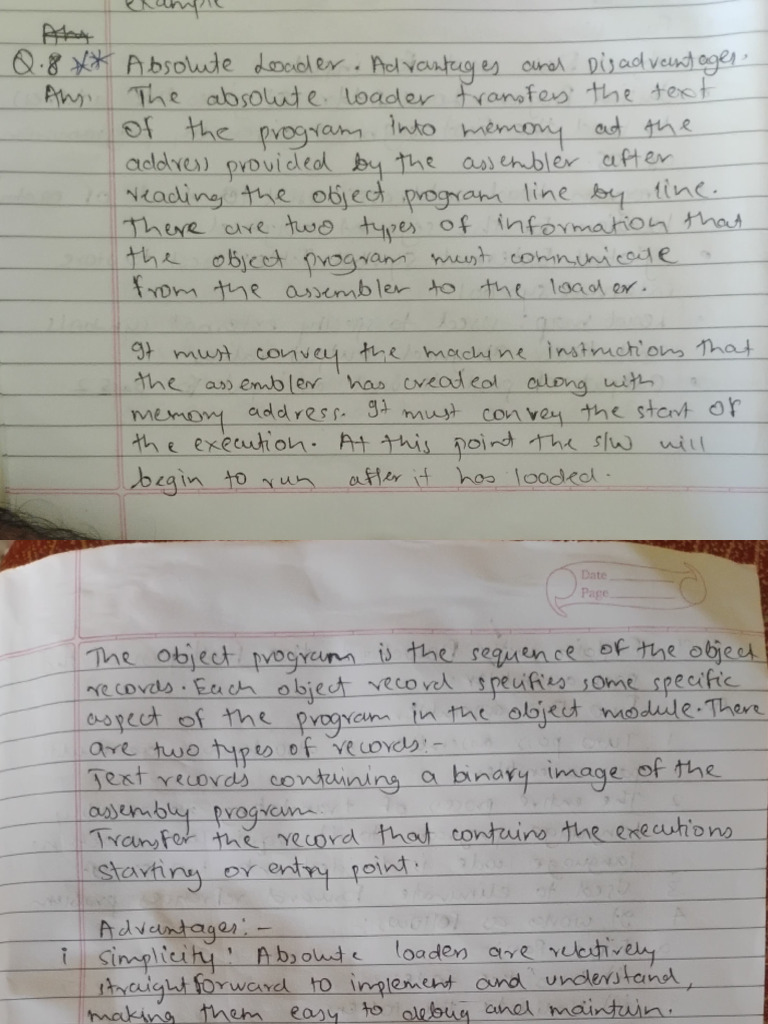 example
Ans
Q.8 ** Absolute Loader. Advantages and Disadvantages.
Ans. The absolute loader transfers the text
of the program into memory at the
address provided by the assembler after
reading the object program line by line.
There are two types of information that
the object program must communicate
from the assembler to the loader.
It must convey the machine instructions that
the assembler has created along with
memory address. It must convey the start of
the execution. At this point the s/w will
begin to run after it has loaded.
Date
Page
The object program is the sequence of the object
records. Each object record specifies some specific
aspect of the program in the object module. There
are two types of records:-
Text records containing a binary image of the
assembly program.
Transfer the record that contains the executions
starting or entry point.
Advantages:-
i Simplicity: Absolute loaders are relatively
straightforward to implement and understand,
making them easy to debug and maintain.